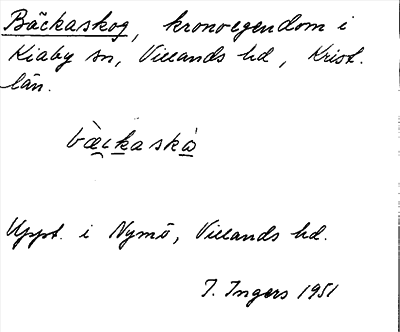 Bäckaskog, kronoegendom i
Kiaby sn, Villands hd, Krist.
län.
bæ̀ckaskå̀
Uppt. i Nymö, Villands hd.
I. Ingers 1951